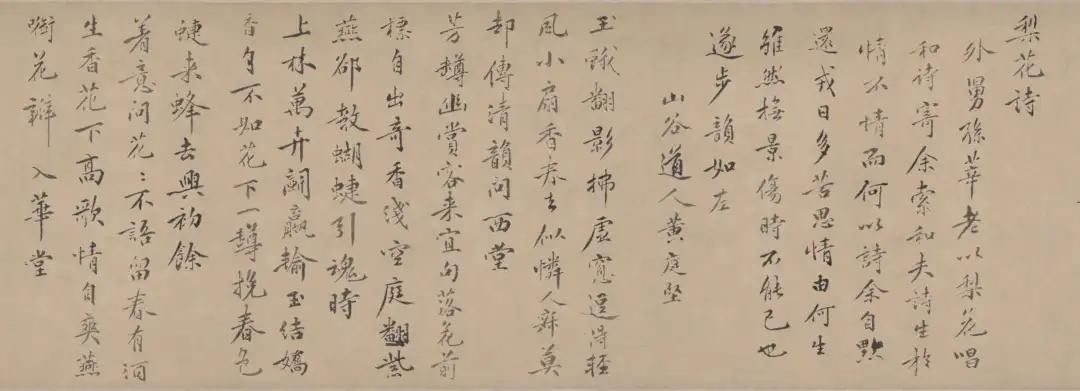 梨花詩
外舅孫莘老以梨花唱
和詩寄余索和夫詩生於
情不情而何以詩余自黜
還戎日多苦思情由何生
雖然撫景傷時不能已也
遂步韻如左
山谷道人黄庭堅
玉蛾翻影拂虛窓逗得輕
風小扇香春去似憐人寐莫
却傳清韻問西堂
芳罇幽賞客来宜向落花前
標自出奇香淺空庭翻紫
燕郤教蝴蜨引魂時
上林萬卉鬭嬴輸玉结嬌
香自不如花下一罇挽春色
蜨来蜂去興初餘
着意問花〻不語留春有酒
生香花下高歌情自爽燕
啣花瓣入華堂